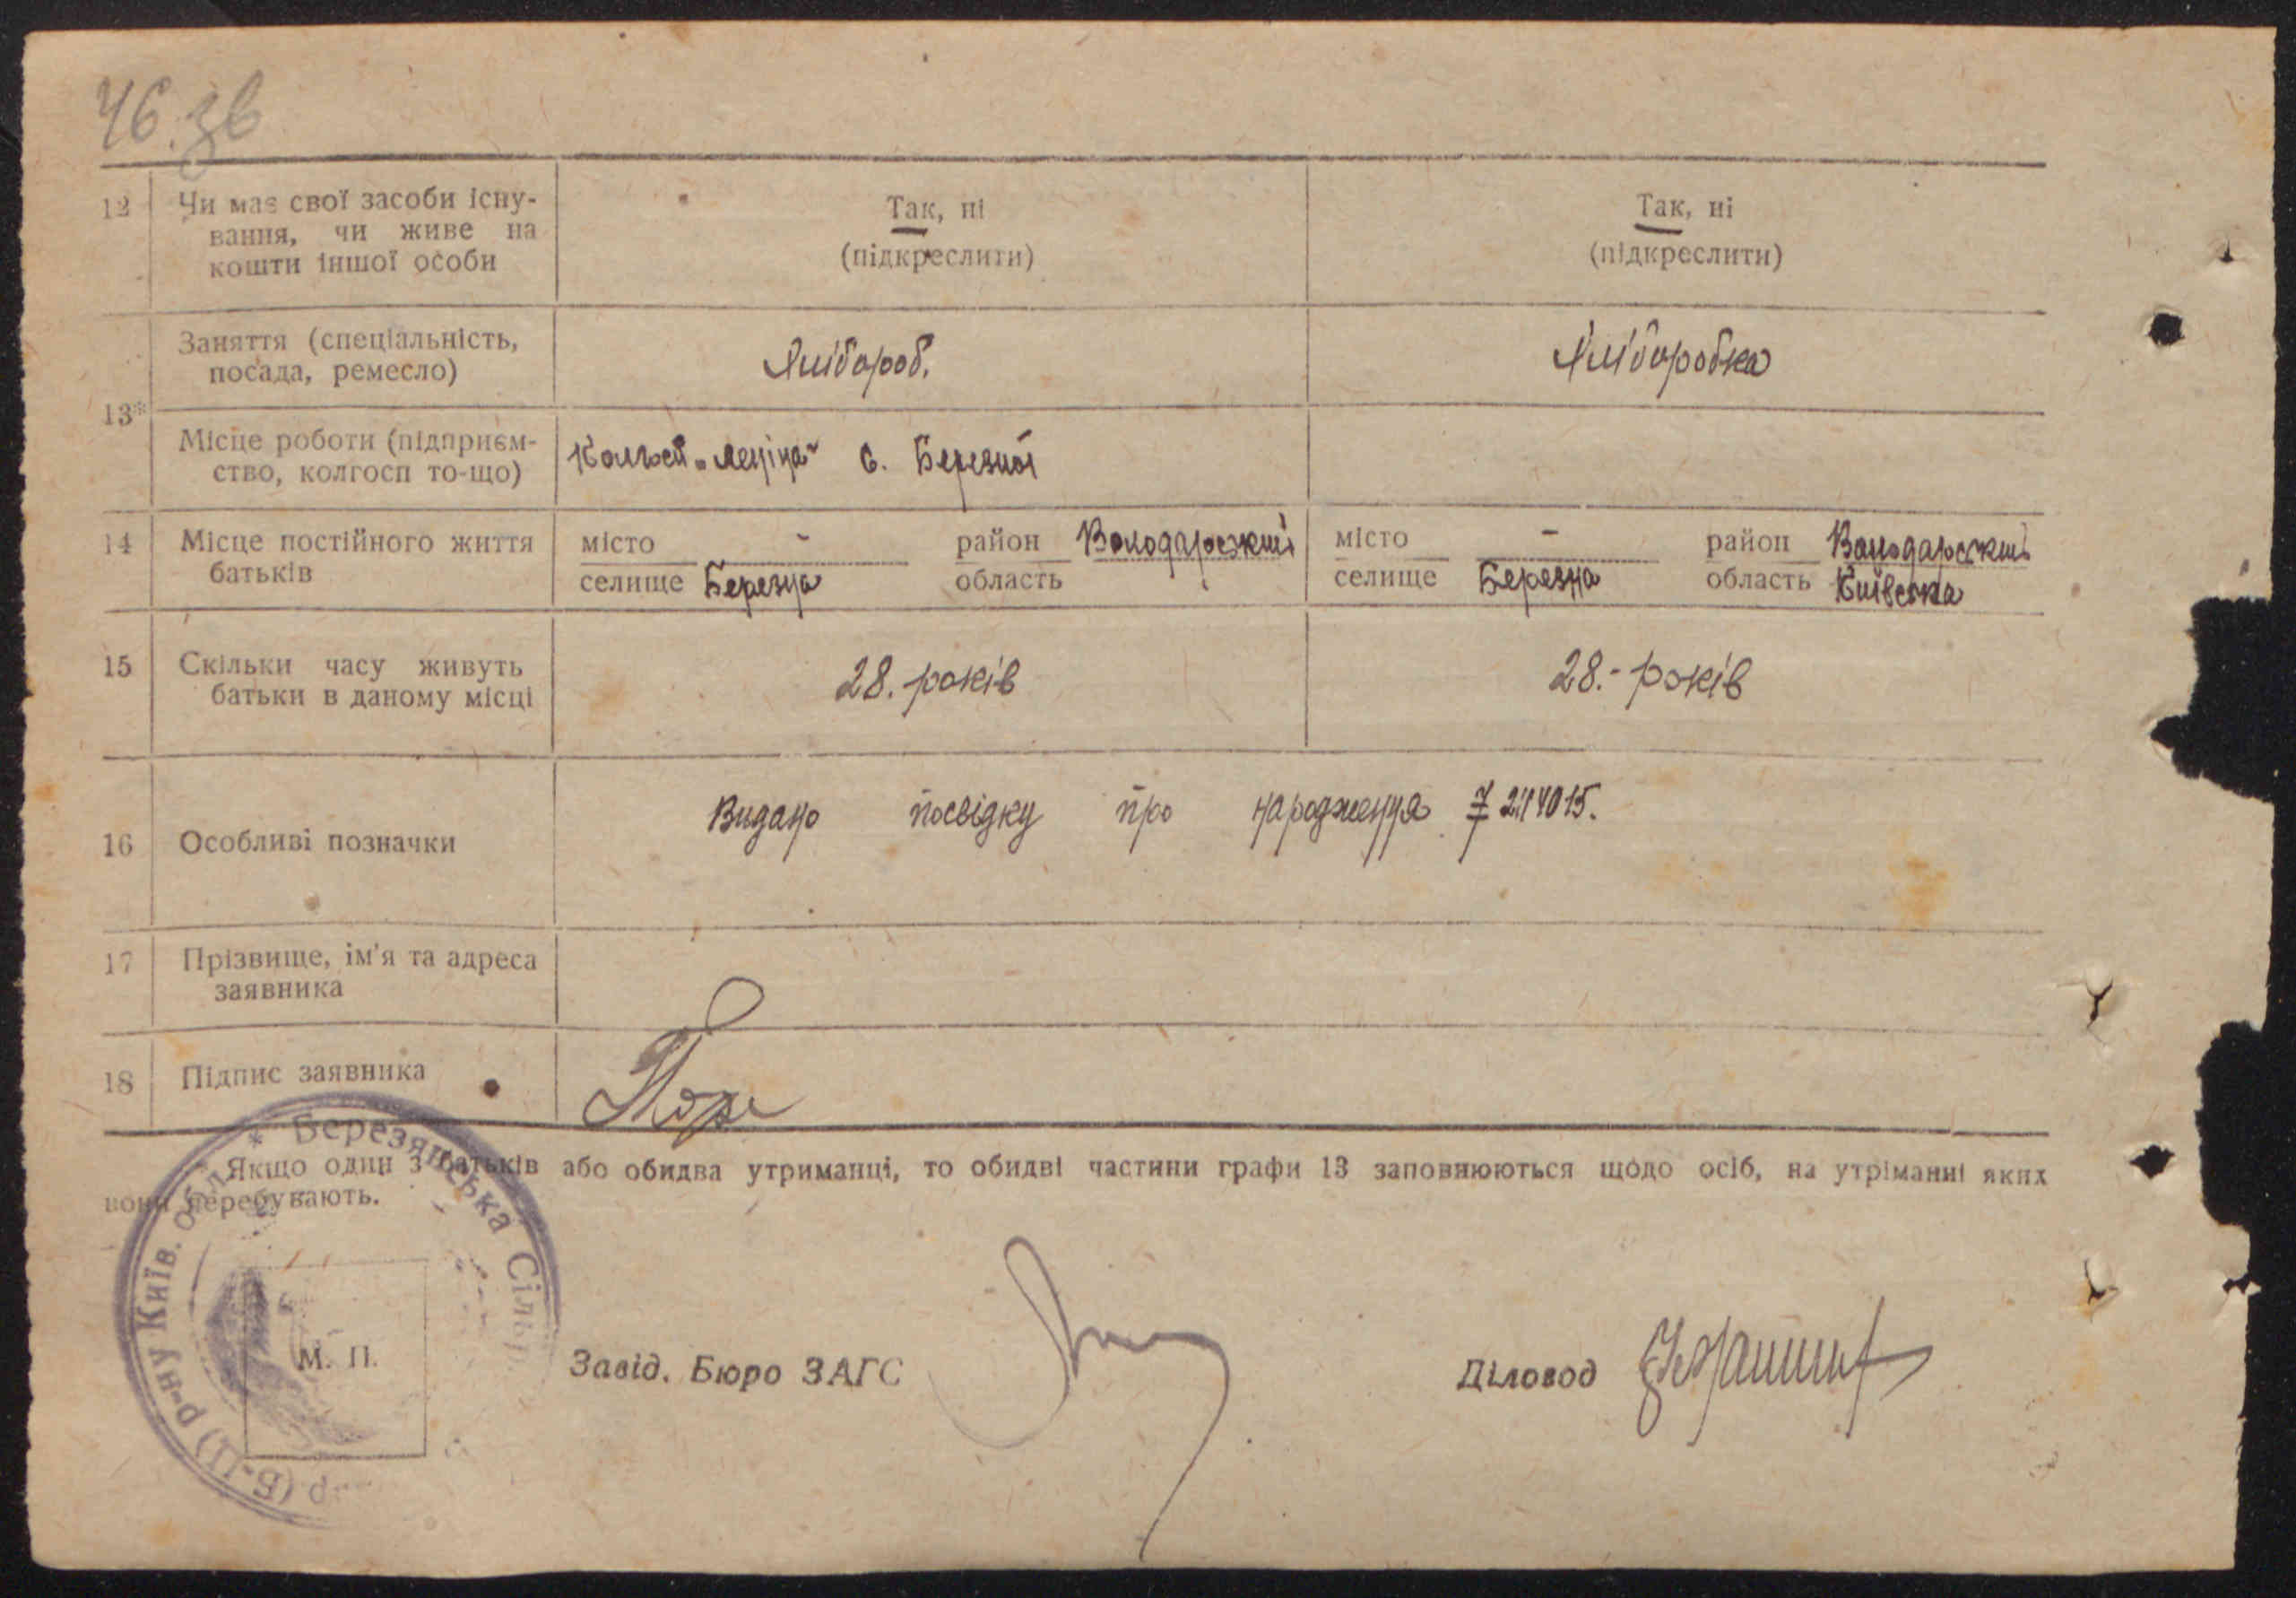 46.зв
12 Чи має свої засоби існу-
вання, чи живе на
кошти іншої особи
Так, ні
(підкреслити)
Так, ні
(підкреслити)
13* Заняття (спеціальність,
посада, ремесло)
Хлібороб.
Хліборобка
Місце роботи (підприєм-
ство, колгосп то-що)
Колгосп „Леніна“ с. Березної
14 Місце постійного життя
батьків
місто - район Володарський
селище Березна область
місто - район Володарський
селище Березна область Київська
15 Скільки часу живуть
батьки в даному місці
28. років
28.- років
16 Особливі позначки
Видано посвідку про народження 7 2114015.
17 Прізвище, ім'я та адреса
заявника
18 Підпис заявника
* Якщо один з батьків або обидва утриманці, то обидві частини графи 13 заповнюються щодо осіб, на утріманні яких
вони перебувають.
Березянська Сільр.
(Б-Ц) р-ну Київ. обл.
М. П.
Завід. Бюро ЗАГС
Діловод